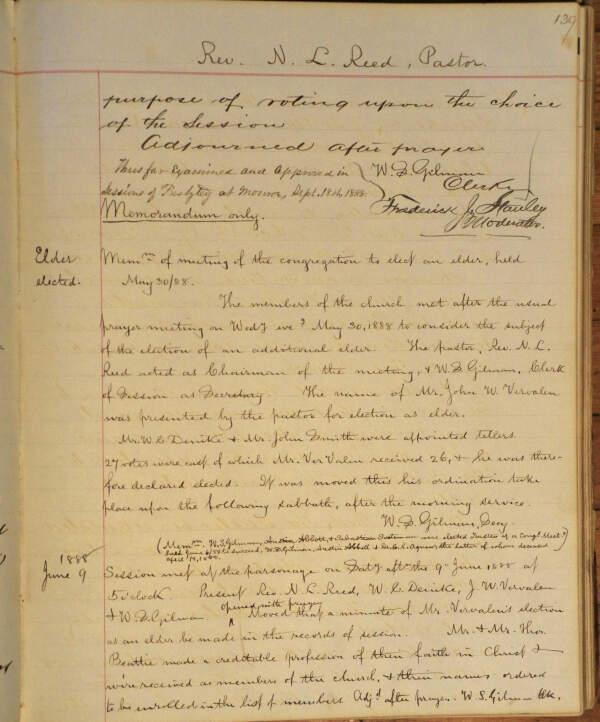 139
Rev. N. L. Reed, Pastor.
purpose of voting upon the choice
of the Session
Adjourned after prayer
Thus far Examined and Approved in
Sessions of Presbytery at Monroe, Sept. 18th, 1888.
W. S. Gilman
Clerk
Frederick J. Stanley
Moderator.
Memorandum only.
Elder
elected.
Memm of meeting of the congregation to elect an elder, held
May 30/88.
The members of the church met after the usual
prayer meeting on Wedy eveg May 30, 1888 to consider the subject
of the election of an additional elder. The pastor, Rev. N. L.
Reed acted as Chairman of the meeting, & W. S. Gilman, Clerk
of Session as Secretary. The name of Mr. John W. Vervalen
was presented by the pastor for election as elder.
Mr. W. C. Denike & Mr. John Smith were appointed tellers
27 votes were cast of which Mr. Ver Valen received 26, & he was there-
fore declared elected. It was moved that his ordination take
place upon the following sabbath, after the morning service.
W. S. Gilman, Secy.
(Memm. W. S. Gilman, Austin Abbott, & were elected Trustees at a Congl Meetg
held June 6/88 to succeed, W. S. Gilman, Austin Abbott & the latter of whom deceased
April 19, 1888.
1888
June 9
Session met at the parsonage on Saty aftn the 9th June 1888 at
5 o'clock. Present Rev. N. L. Reed, W. C. Denike, J. W. Vervalen
& W. S. Gilman. opened with prayer Moved that a minute of Mr. Vervalen's election
as an elder be made in the records of session. Mr. & Mr. Thos.
Beattie made a creditable profession of their faith in Christ &
were received as members of the church, & their names ordered
to be enrolled in the list of members Adjd after prayer. W. S. Gilman Clk.